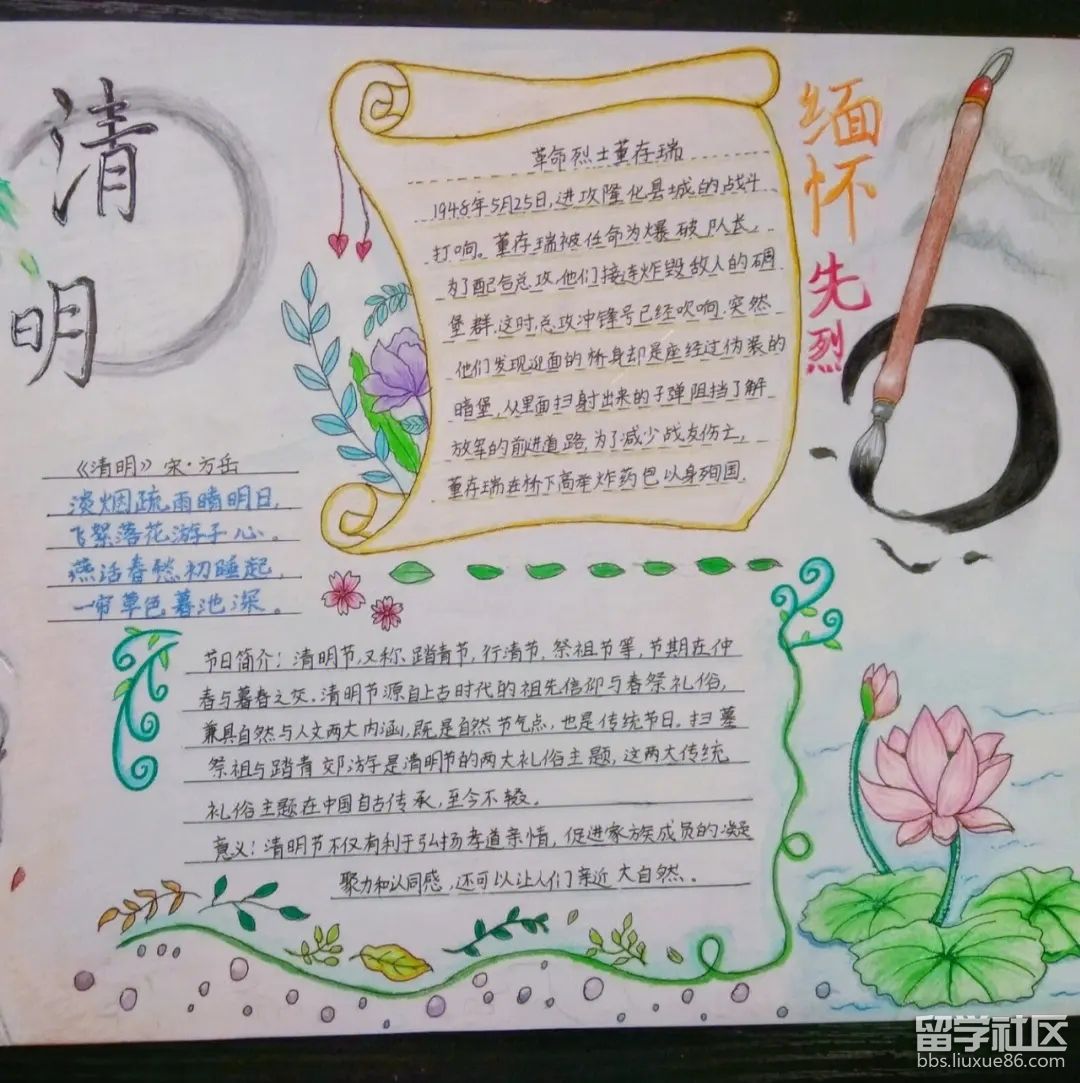 清
明
革命烈士董存瑞
1948年5月25日,进攻隆化县城的战斗
打响。董存瑞被任命为爆破队长,
为了配合总攻,他们接连炸毁敌人的碉
堡群,这时,总攻冲锋号已经吹响,突然
他们发现迎面的桥身却是座经过伪装的
暗堡,从里面扫射出来的子弹阻挡了解
放军的前进道路,为了减少战友伤亡,
董存瑞在桥下高举炸药包以身殉国.
缅
怀
先
烈
《清明》宋·方岳
淡烟疏雨晴明日,
飞絮落花游子心。
燕活春愁初睡起,
一帘草色暮池深。
节日简介:清明节,又称、踏青节,行清节,祭祖节等,节期在仲
春与暮春之交.清明节源自上古时代的祖先信仰与春祭礼俗,
兼具自然与人文两大内涵,既是自然节气点,也是传统节日。扫墓
祭祖与踏青郊游乎是清明节的两大礼俗主题,这两大传统
礼俗主题在中国自古传承,至今不辍。
意义:清明节不仅有利于弘扬孝道亲情,促进家族成员的凝
聚力和认同感,还可以让人们亲近大自然.
留学社区
bbs.liuxue86.com